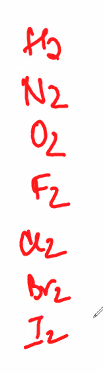 H2
N2
O2
F2
Cl2
Br2
I2